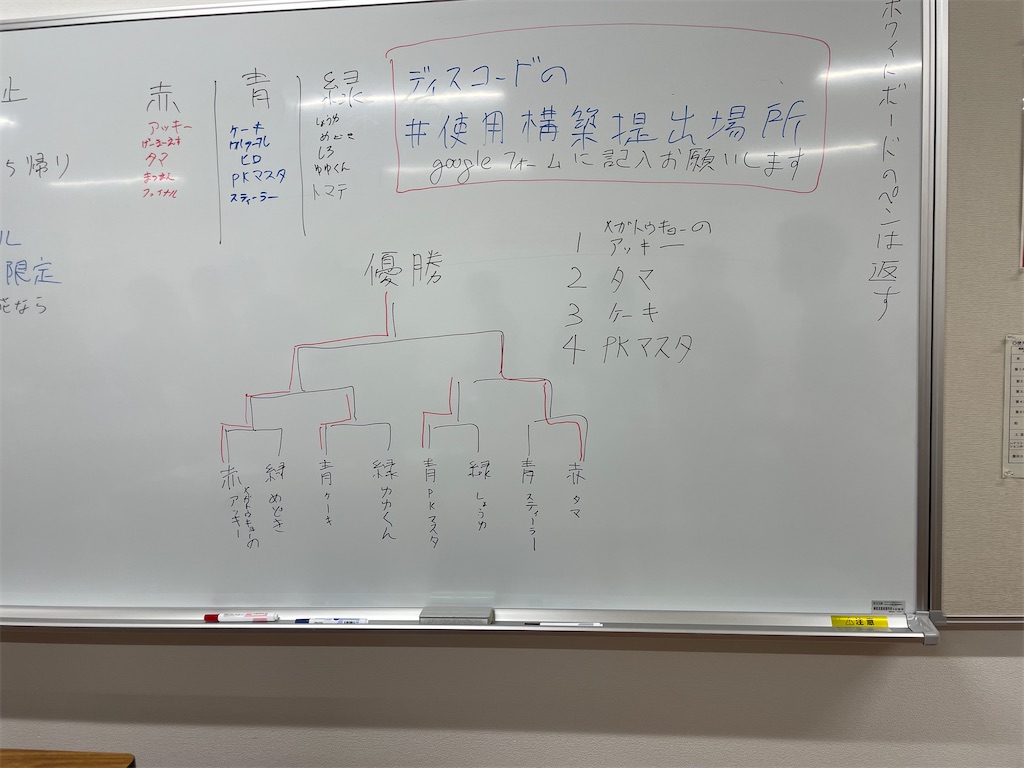 止
ら帰り
ル
限定
花なら
赤
アッキー
タマ
ファイナル
青
ケーキ
ヒロ
PKマスタ
スティーラー
緑
しょうゆ
めどき
しろ
ゆゆくん
トマテ
ディスコードの
#使用構築提出場所
googleフォームに記入お願いします
ホワイトボードのペンは返す
優勝
1 メガトウキョーの
アッキー
2 タマ
3 ケーキ
4 PKマスタ
赤 メガトウキョーの
アッキー
緑 めどき
青 ケーキ
緑 カカくん
青 PKマスタ
緑 しょうゆ
青 スティーラー
赤 タマ
注意